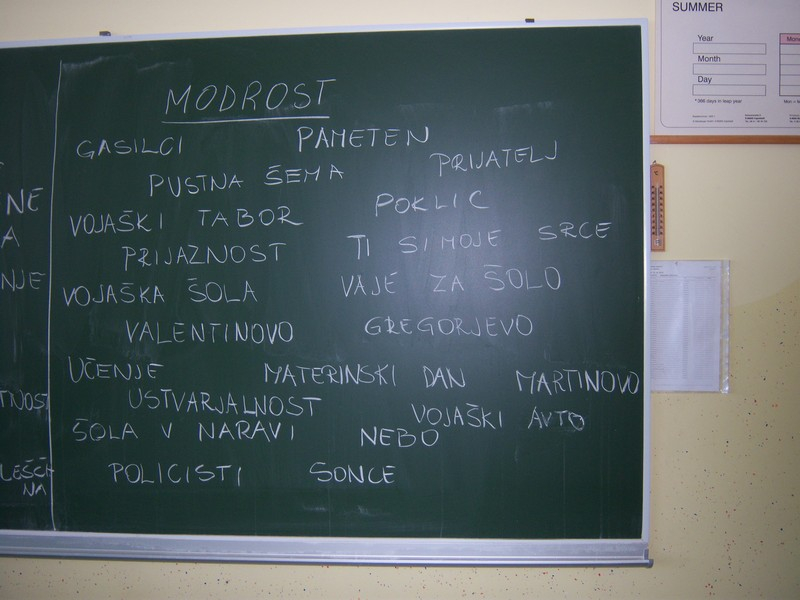 SUMMER
Year
Month
Day
*366 days in leap year
MODROST
GASILCI PAMETEN
PUSTNA ŠEMA PRIJATELJ
VOJAŠKI TABOR POKLIC
PRIJAZNOST TI SI MOJE SRCE
VOJAŠKA ŠOLA VAJE ZA ŠOLO
VALENTINOVO GREGORJEVO
UČENJE MATERINSKI DAN MARTINOVO
USTVARJALNOST VOJAŠKI AVTO
ŠOLA V NARAVI NEBO
POLICISTI SONCE
NE
A
NJE
TNOST
LEŠČI
NA